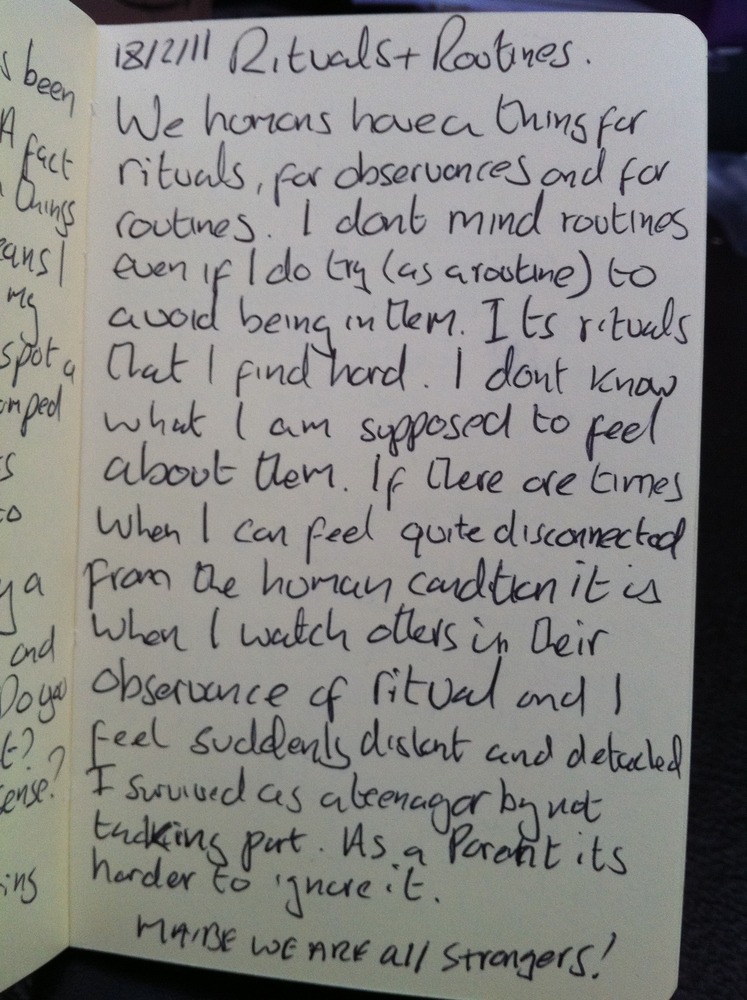 s been
A fact
things
eans I
my
spot a
mped
s
to
y a
and
Do you
t?
ense?
ing
18/2/11 Rituals + Routines.
We humans have a thing for
rituals, for observances and for
routines. I dont mind routines
even if I do try (as a routine) to
avoid being in them. Its rituals
that I find hard. I dont know
what I am supposed to feel
about them. If there are times
when I can feel quite disconnected
from the human condition it is
when I watch others in their
observance of ritual and I
feel suddenly distant and detached
I survived as a teenager by not
taking part. As a Parent its
harder to ignore it.
MAIBE WE ARE all strangers!